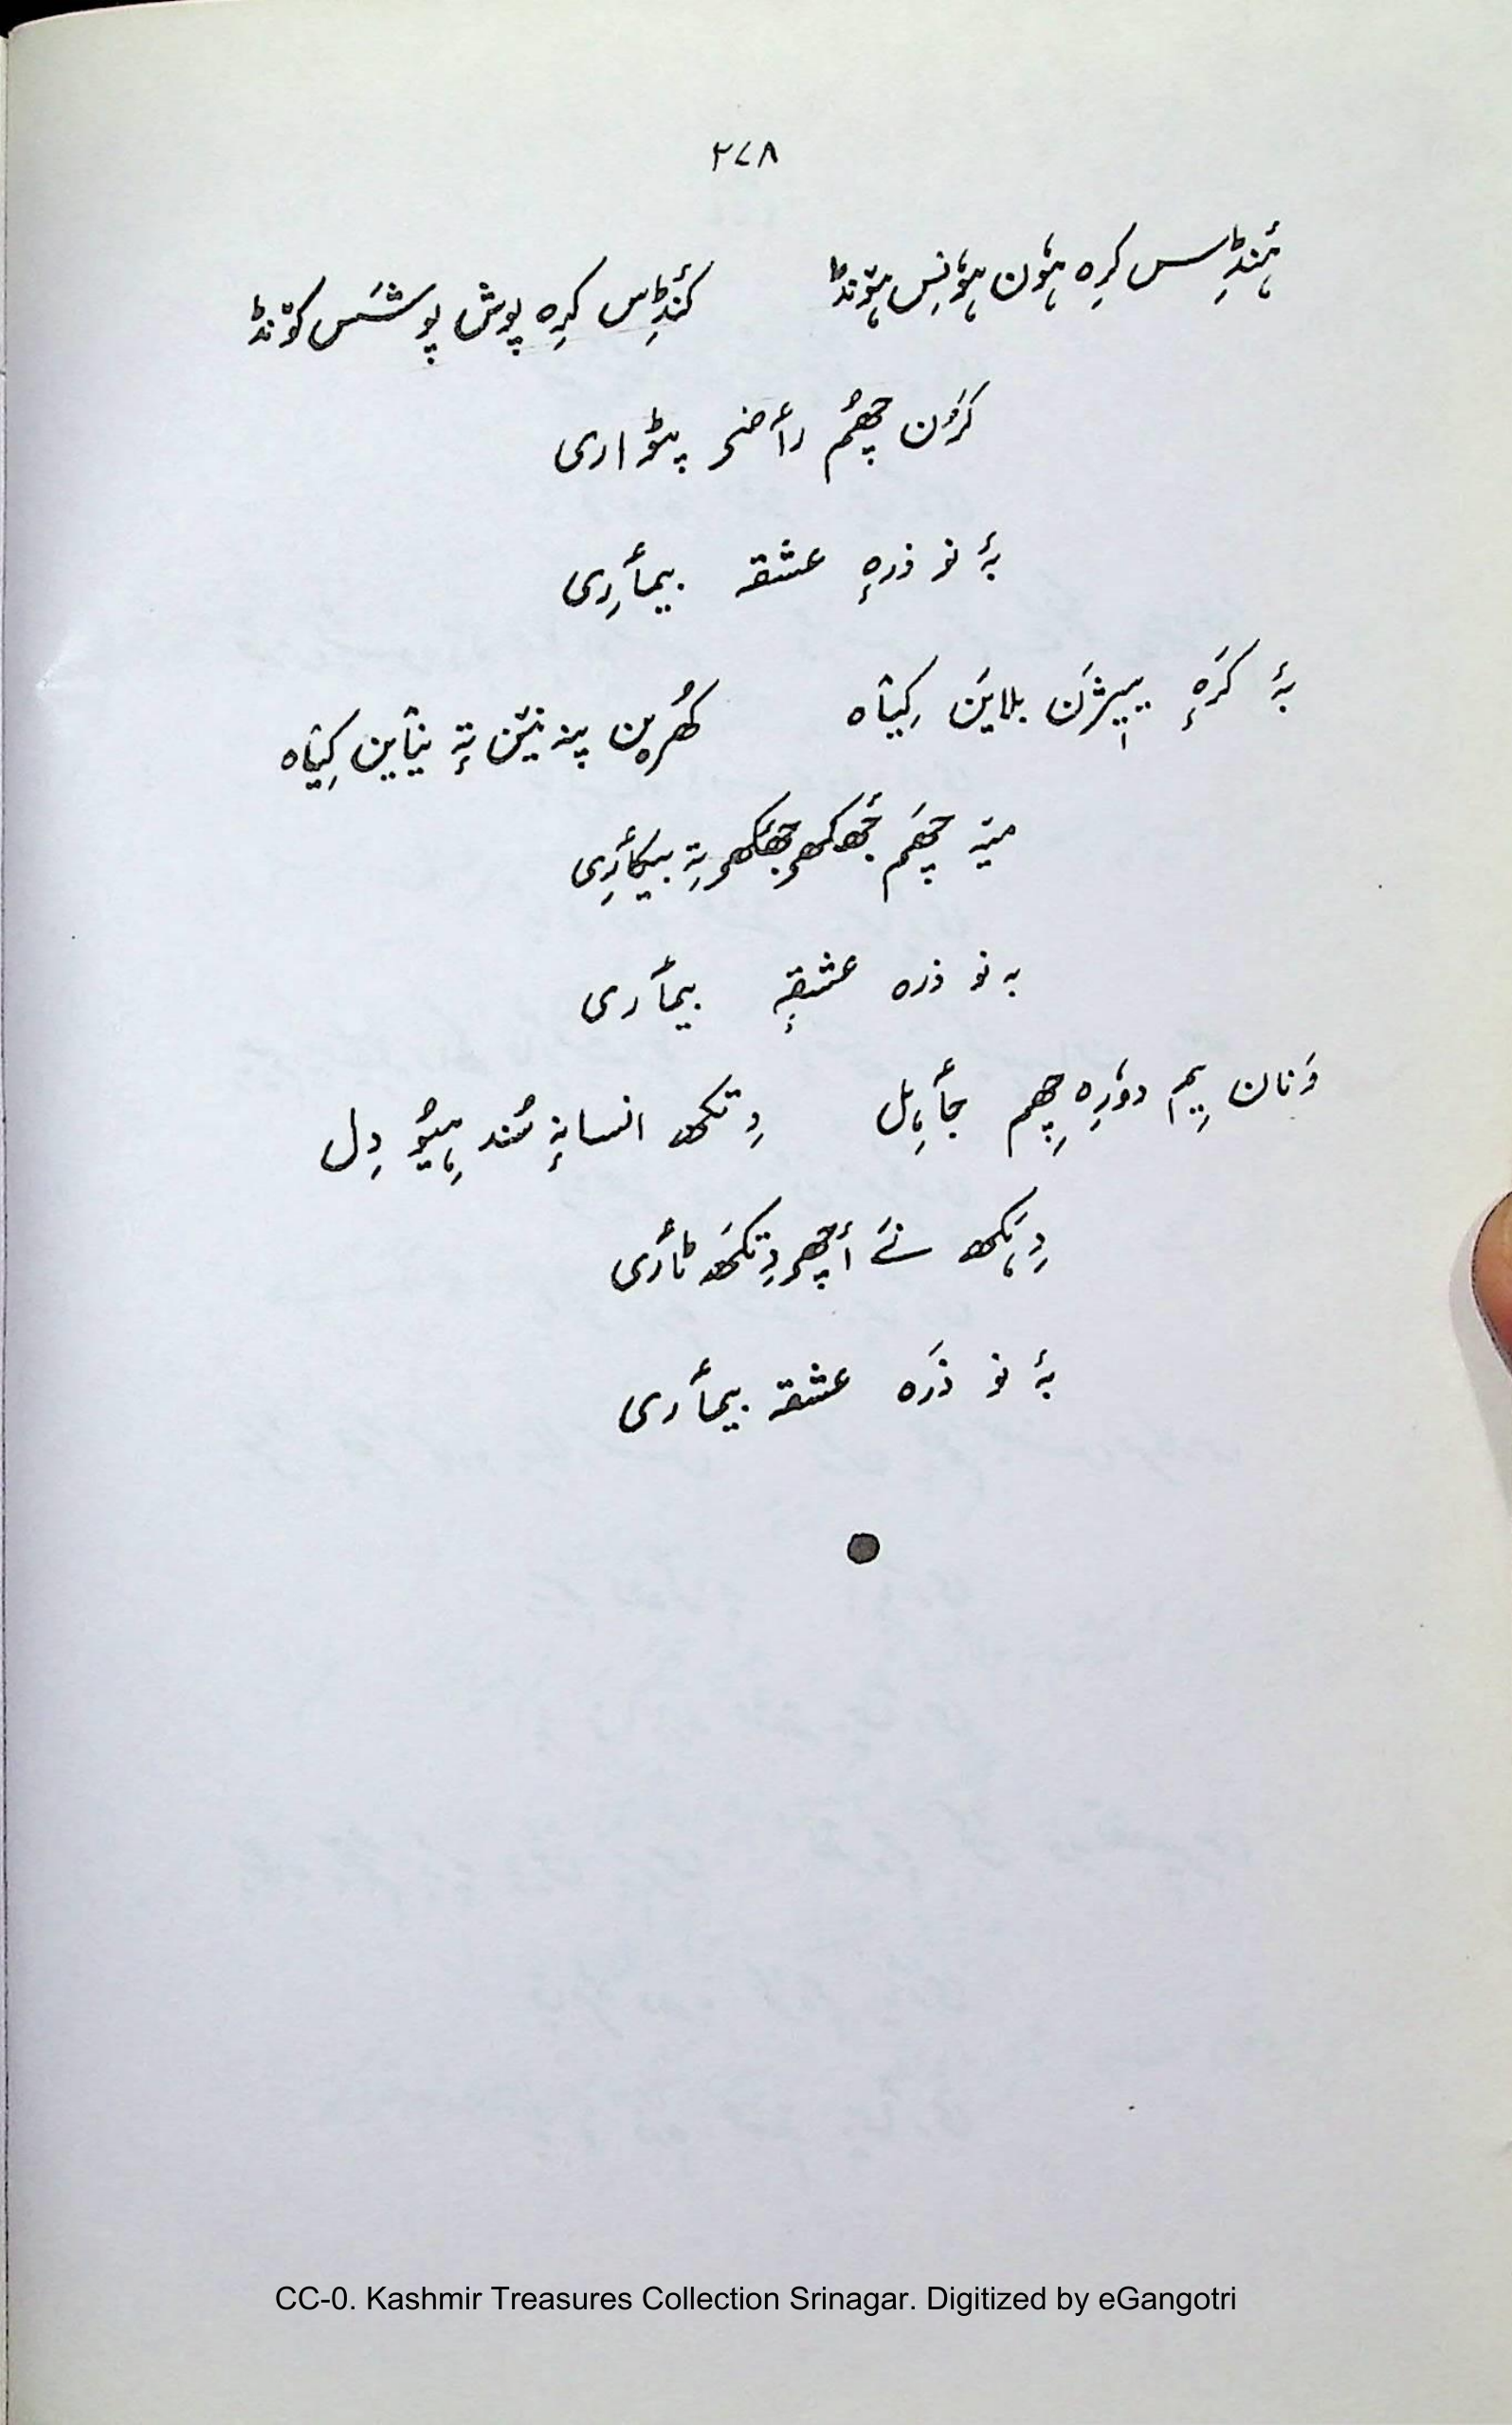 ۲۷۸
ۂنڈِس کرِہ ہوٗن ہوٗنِس ہوٚنڈا کٔنڈِس کرِہ پوش پوشَس کوٚنڈا
کرُن چھُم رٲضی پٹواری
بۂ نو ذرہٕ عشقہ بیمٲرِی
بۂ کَرہٕ پیپژن بلایَن کِیٛاہ کھُرین پنہٕ نیٚن تہٕ نیٛاین کِیٛاہ
میٚہ چھَم جھَکھ جھَکھ تہِ بیکٲرِی
بہ نو ذرہ عشقہٕ بیمٲری
وَنان یِم دوٗرِہ چھِم جٲہِل دِتکھ انسانہٕ سُند ہِیُو دِل
دِہَکھ نَے أچھ دِتکھَ ٹٲری
بۂ نو ذَرہ عشقہ بیمٲری
CC-0. Kashmir Treasures Collection Srinagar. Digitized by eGangotri